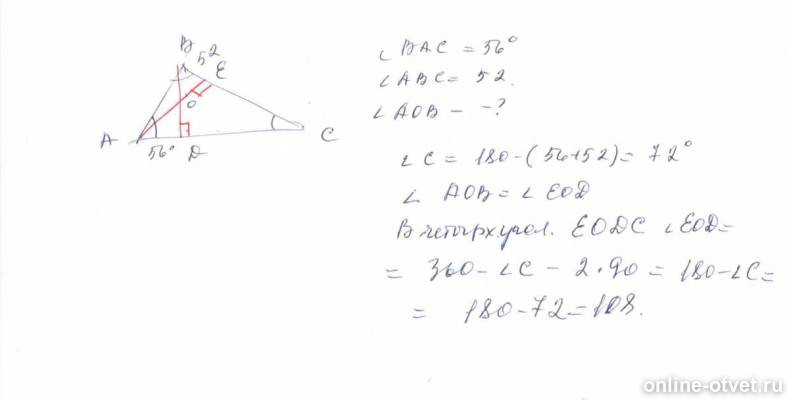 B 52
E
O
A
C
56° D
∠ BAC = 56°
∠ ABC = 52.
∠ AOB - -?
∠ C = 180-(56+52) = 72°
∠ AOB = ∠ EOD
В четырхугол. EODC ∠EOD=
= 360-∠C - 2·90 = 180-∠C=
= 180-72=108.
online-otvet.ru